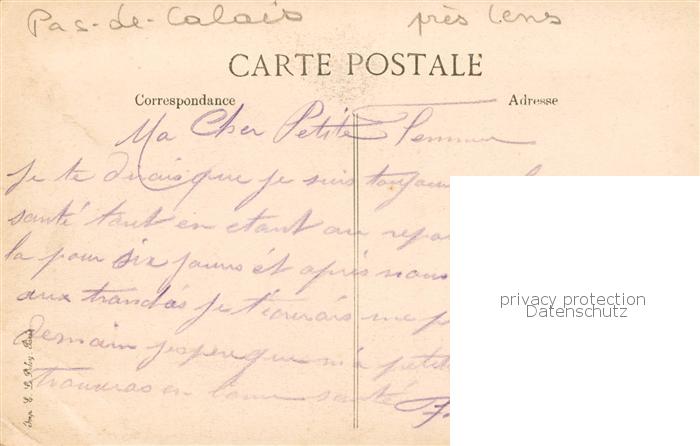 Pas-de-Calais près Lens
CARTE POSTALE
Correspondance Adresse
Ma Cher Petite Femme
Je te dirais que je suis toujours
santé tout en etant au repo
la pour six jours et après nous
aux tranchés je t'ecrirais
Demain jespere que ma petite
trouveras en bonne santé
privacy protection
Datenschutz